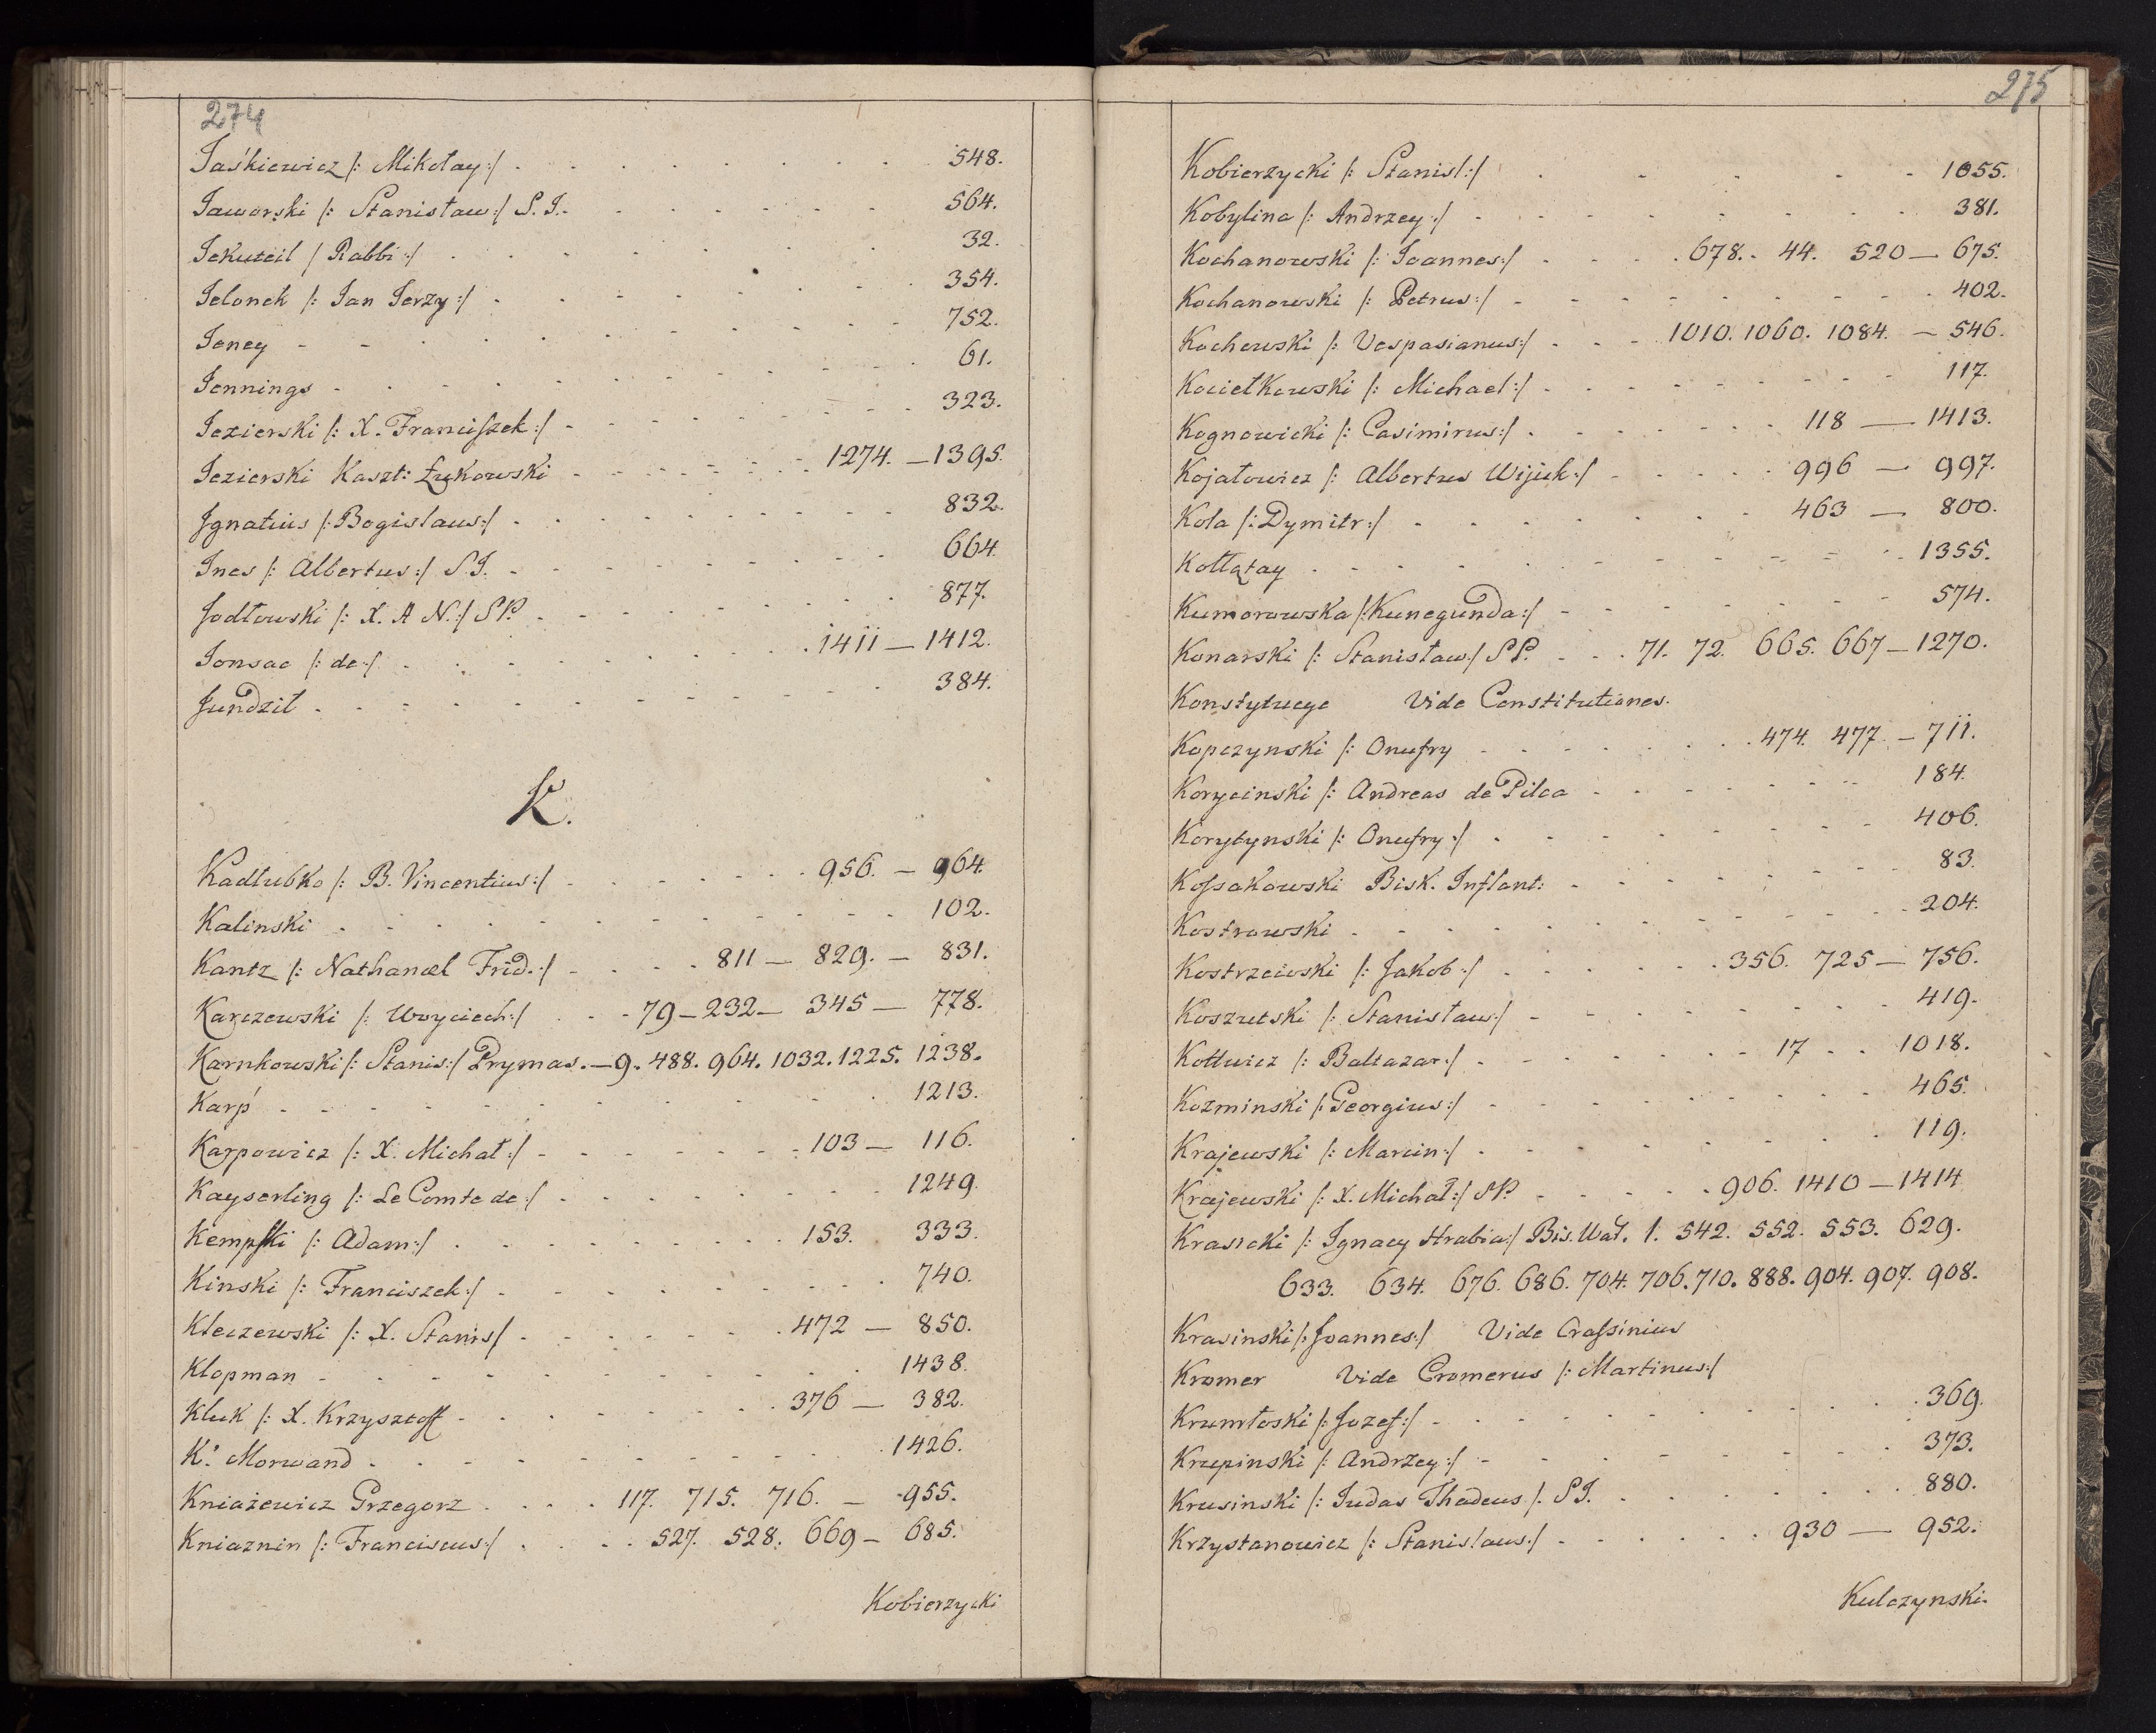 274
Jaśkiewicz /: Mikołay :/ 548.
Jaworski /: Stanisław :/ S. J. 564.
Jekuteil / Rabbi :/ 32.
Jelonek /: Jan Jerzy :/ 354.
Jeney 752.
Jennings 61.
Jezierski /: X. Franciszek :/ 323.
Jezierski Kaszt: Łukowski 1274. — 1395.
Ignatius /: Bogislaus :/ 832.
Ines /: Albertus :/ S J. 664.
Jodłowski /: X. A N. :/ S P. 877.
Jonsac /: de :/ 1411 — 1412.
Jundził 384.
K.
Kadłubko /: B. Vincentius :/ 956. — 964.
Kalinski 102.
Kantz /: Nathanæl Frid. :/ 811 — 829. — 831.
Karczewski /: Woyciech :/ 79 — 232 — 345 — 778.
Karnkowski /: Stanis :/ Prymas. — 9. 488. 964. 1032. 1225. 1238.
Karp' 1213.
Karpowicz /: X. Michał :/ 103 — 116.
Kayserling /: Le Comte de :/ 1249.
Kempski /: Adam :/ 153. 333.
Kinski /: Franciszek :/ 740.
Kleczewski /: X. Stanis / 472 — 850.
Klopman 1438.
Kluk /: X. Krzysztoff 376 — 382.
K: Morwand 1426.
Kniażewicz Grzegorz 117. 715. 716. — 955.
Kniaznin /: Franciscus :/ 527. 528. 669 — 685.
Kobierzycki
275
Kobierzycki /: Stanisl :/ 1055.
Kobylina /: Andrzey :/ 381.
Kochanowski /: Joannes :/ 678. 44. 520 — 675.
Kochanowski /: Petrus :/ 402.
Kochowski /: Vespasianus :/ 1010. 1060. 1084. — 546.
Kociełkowski /: Michael :/ 117.
Kognowicki /: Casimirus :/ 118 — 1413.
Kojałowicz /: Albertus Wijuk :/ 996 — 997.
Kola /: Dymitr :/ 463 — 800.
Kołłątay 1355.
Kumorowska /: Kunegunda :/ 574.
Konarski /: Stanisław / S P. 71. 72. 665. 667 — 1270.
Konstytucye Vide Constitutiones.
Kopczynski /: Onufry 474. 477 — 711.
Korycinski /: Andreas de Pilca 184.
Korytynski /: Onufry :/ 406.
Kossakowski Bisk. Inflant: 83.
Kostrowski 204.
Kostrzewski /: Jakob :/ 356. 725 — 756.
Koszutski /: Stanisław :/ 419.
Kottwicz /: Baltazar :/ 17 1018.
Kozminski /: Georgius :/ 465.
Krajewski /: Marcin :/ 119.
Krajewski /: X. Michał :/ S P. 906. 1410 — 1414
Krasicki /: Ignacy Hrabia :/ Bis. War. 1. 542. 552. 553. 629.
633. 634. 676. 686. 704. 706. 710. 888. 904. 907. 908.
Krasinski /: Joannes :/ Vide Crassinius
Kromer Vide Cromerus /: Martinus :/
Krumłoski /: Jozef :/ 369.
Krupinski /: Andrzey :/ 373.
Krusinski /: Judas Thadeus /. S J. 880.
Krzystanowicz /: Stanislaus :/ 930 — 952.
Kulczynski.